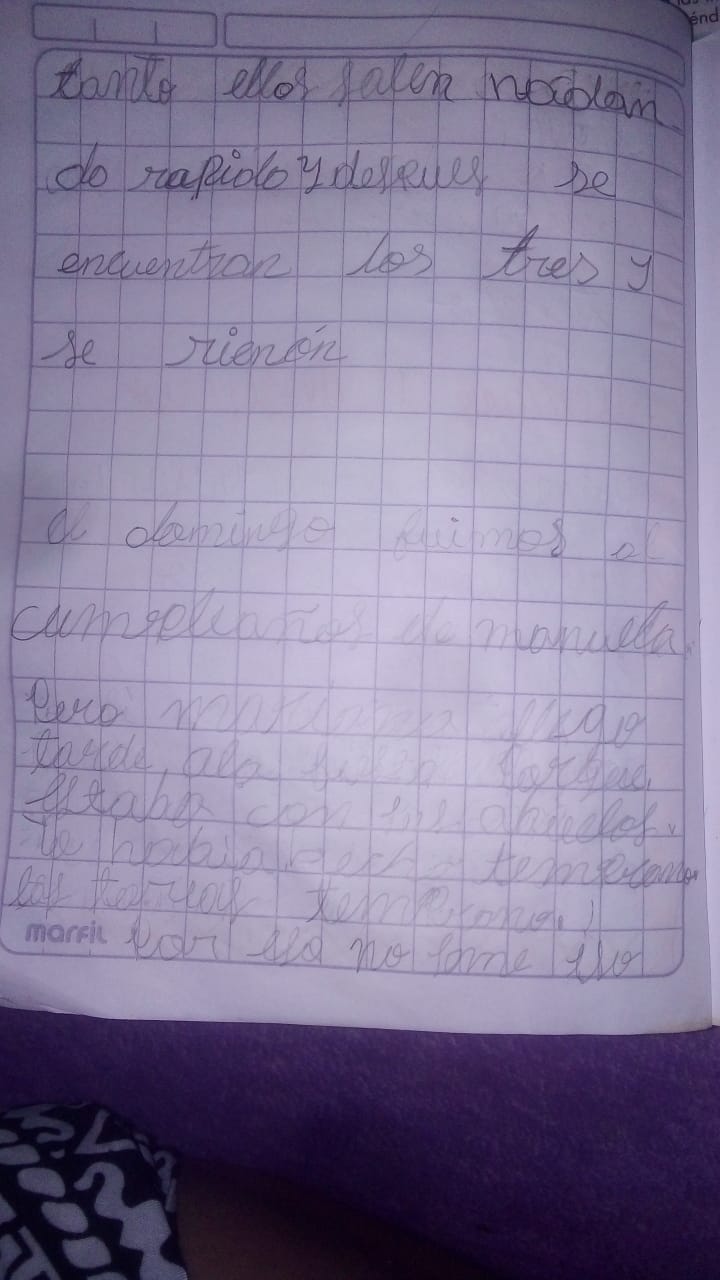 énd
tanto ellos salen nadan
do rapido y despues se
encuentran los tres y
se rienón
el domingo fuimos al
cumpleaños de manuela.
Pero llego
tarde ala porque
estaba con sus abuelos.
temprano.
las temprano.
marfil por eso no